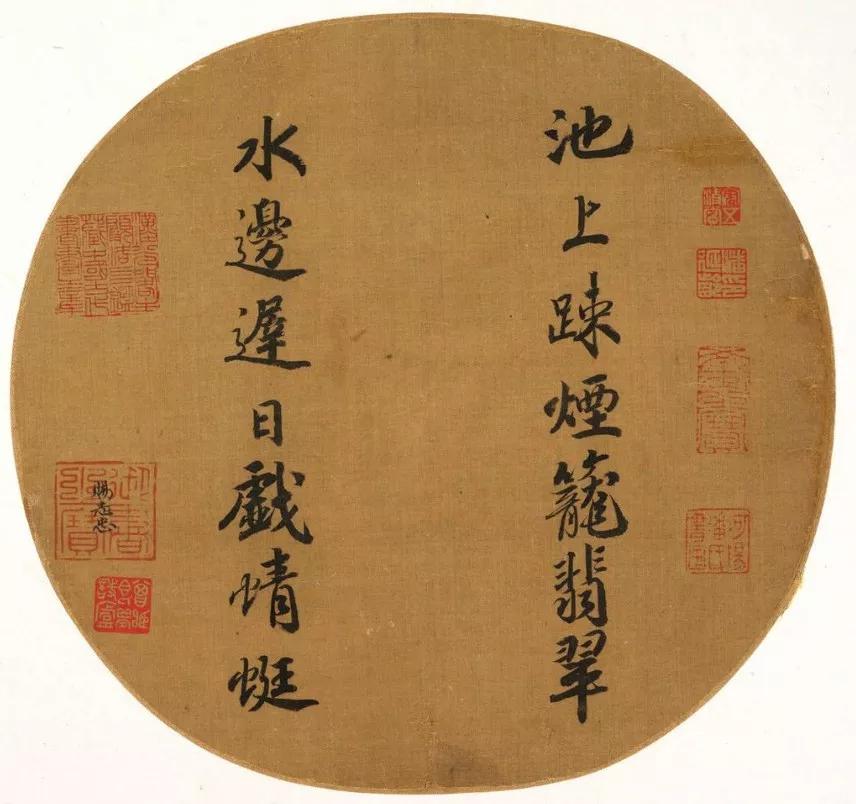 池上踈煙籠翡翠
水邊遲日戲蜻蜓
賜志忠